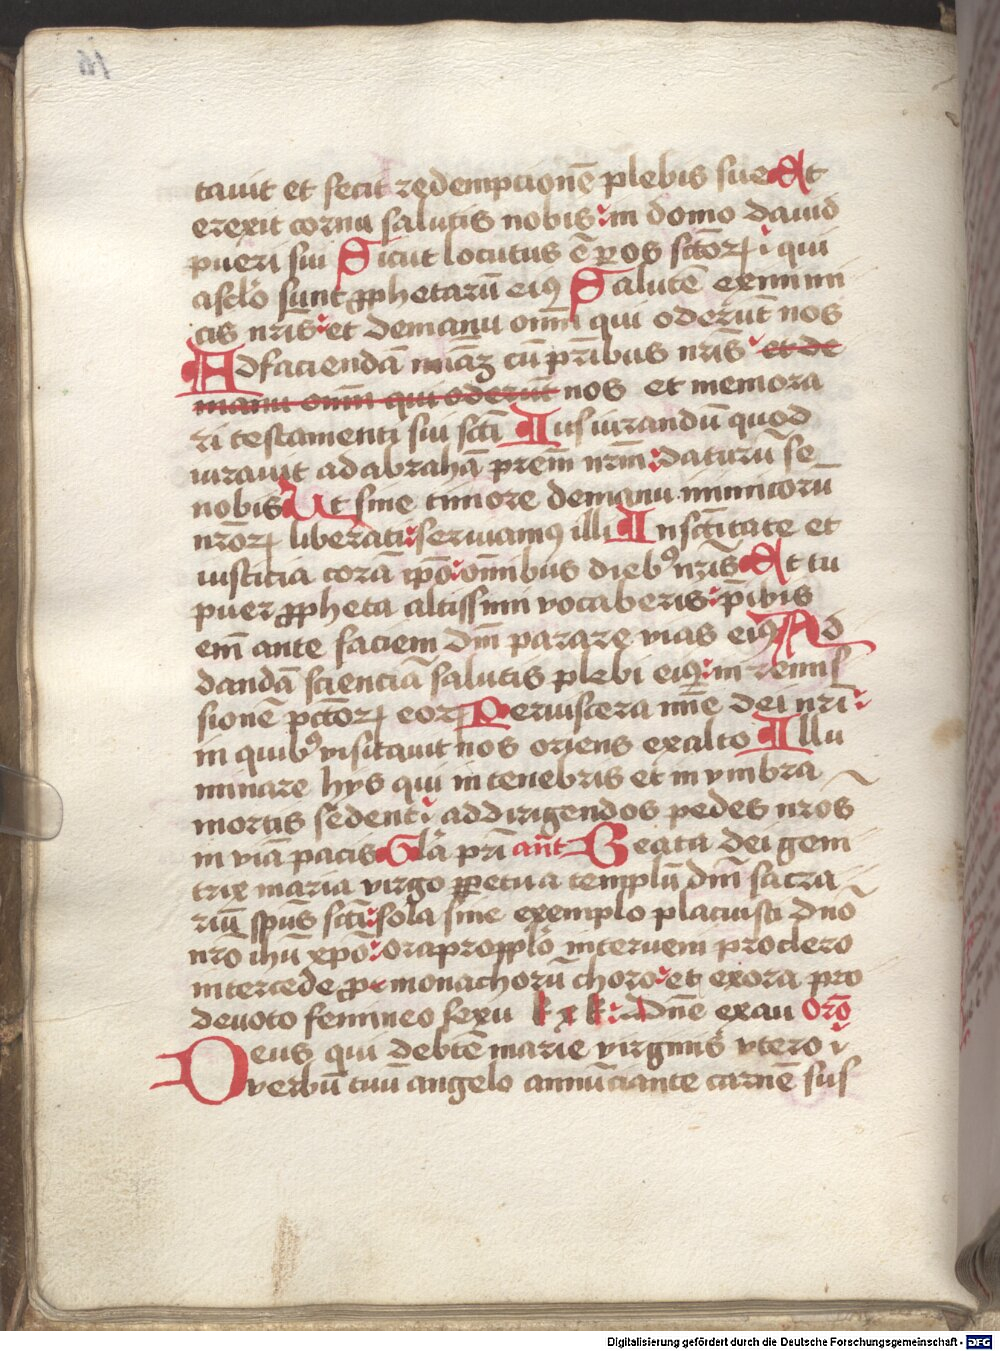 tauit et fecit redempcionē plebis sue Et
erexit cornu salutis nobis in domo dauid
pueri sui Sicut locutus ē ꝑ os sctōꝝ i qui
a sclo sunt ꝓphetarū eiꝰ Salutē ex inimi
cis nr̄is et de manu oīm qui oderūt nos
Ad faciendā mīaꝫ cū pr̄ibus nr̄is et de
manu oīm qui oderūt nos et memora
ri testamenti sui sctī Ius iurandū quod
iurauit ad abrahā prēm nr̄m daturū se
nobis Ut sine timore de manu inimicorū
nr̄oꝝ liberati seruiamꝰ illi In sctītate et
iusticia corā ipō om̄ibus diebꝰ nr̄is Et tu
puer ꝓpheta altissimi vocaberis p̄ibis
em̄ ante faciem dn̄i parare vias eiꝰ Ad
dandā scienciā salutis plebi eiꝰ in remis
sionē pctōꝝ eoꝝ Per viscera mīe dei nr̄i
in quibꝰ visitauit nos oriens ex alto Illu
minare hys qui in tenebris et in vmbra
mortis sedent i ad dirigendos pedes nr̄os
in viā pacis Gl̄a pr̄i an̄t Beata dei geni
trix maria virgo ꝑpetua templū dn̄i sacra
riū sp̄us sctī sola sine exemplo placuisti dn̄o
nr̄o ih̄u xp̄o ora pro ppl̄o interueni pro clero
intercede ꝓ monachorū choro et exora pro
deuoto femineo sexu k x k Dn̄e exau Or̄o
Deus qui de btē marie virginis vtero i
verbū tuū angelo annūciante carnē sus